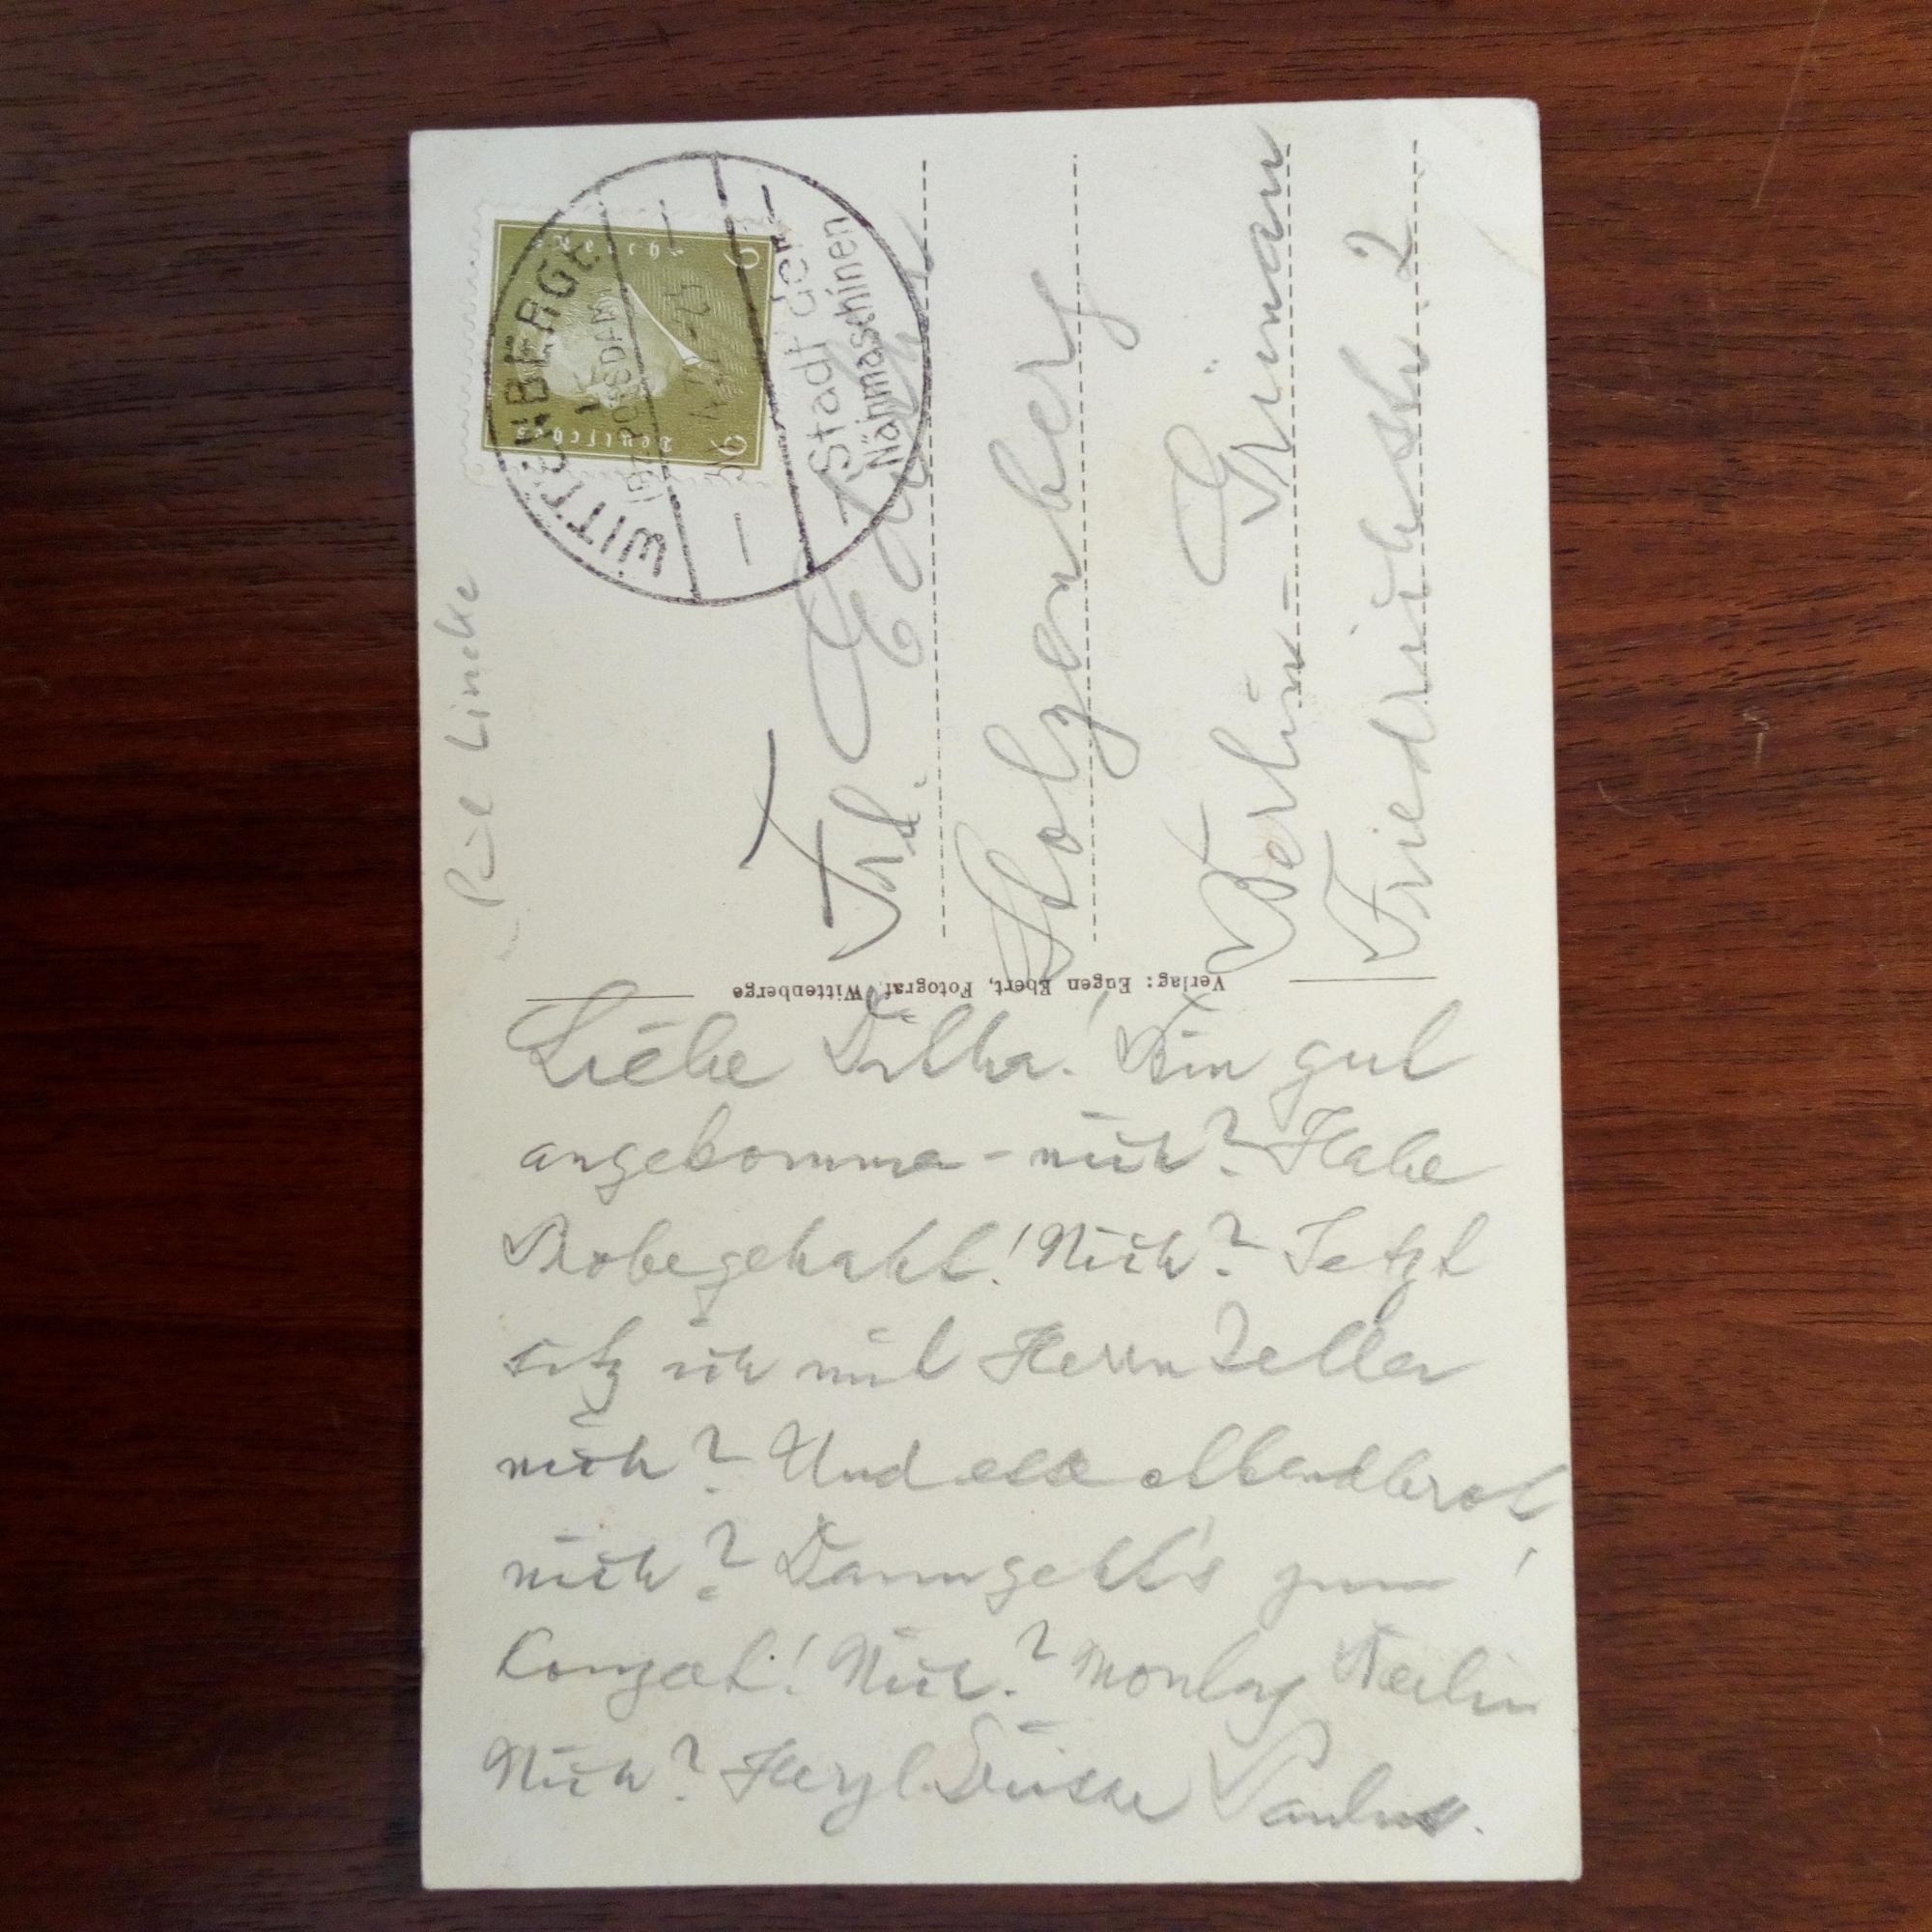 Paul Lincke
Deutsches Reich
6 6
WITTENBERGE
(BZ. POTSDAM)
Stadt der
Nähmaschinen
Frl.
Holzenberg
Berlin- Grünau
Friedrichstr. 2
Verlag: Eugen Ebert, Fotograf, Wittenberge
Liebe! Bin gut
angekommen - nich? Habe
Probe gehabt! Nich? Jetzt
sitz ich mit Herrn Zeller
nich? Und esse Abendbrot
nich? Dann geht's zum
Konzert! Nich? Montag Berlin
Nich? Herzl. Grüsse Paulus.